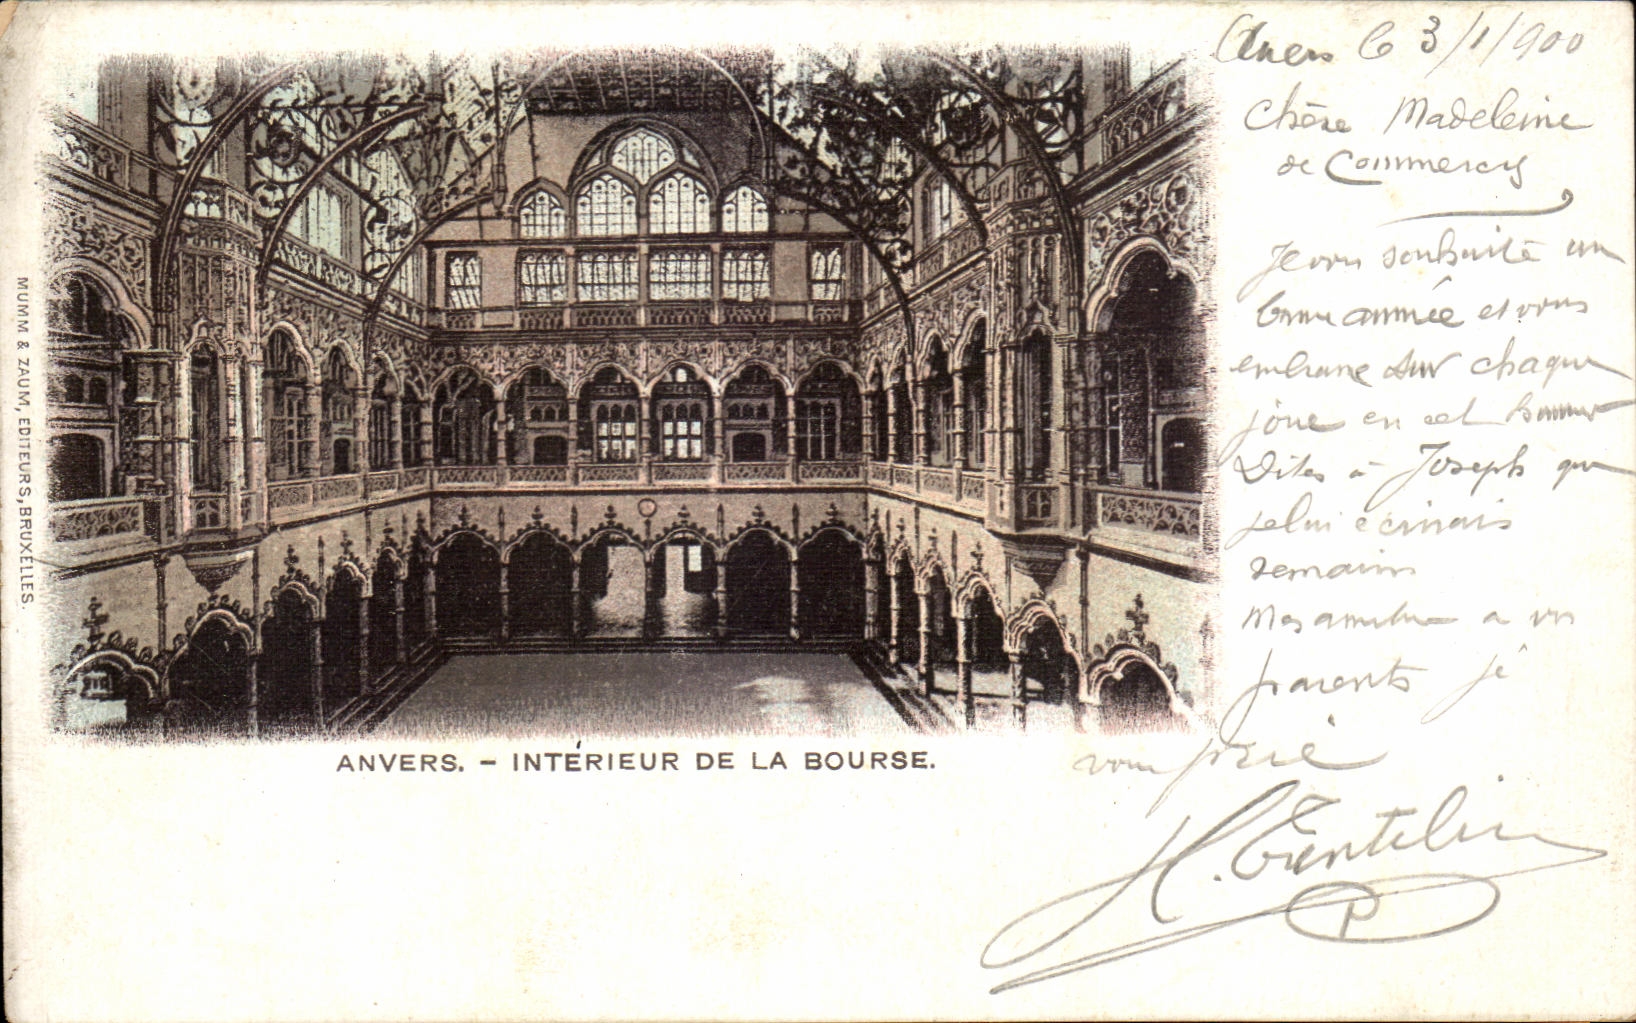 Anvers le 3/1/900
Chère Madeleine
de Commercy
Je vous souhaite un
bonne année et vous
embrasse sur chaque
joue en cet honneur
Dites à Joseph que
je lui écrirais
demain
Mes amitiés a vos
parents je
vous prie
H.
P
ANVERS. - INTÉRIEUR DE LA BOURSE.
MUMM & ZAUM, EDITEURS, BRUXELLES.